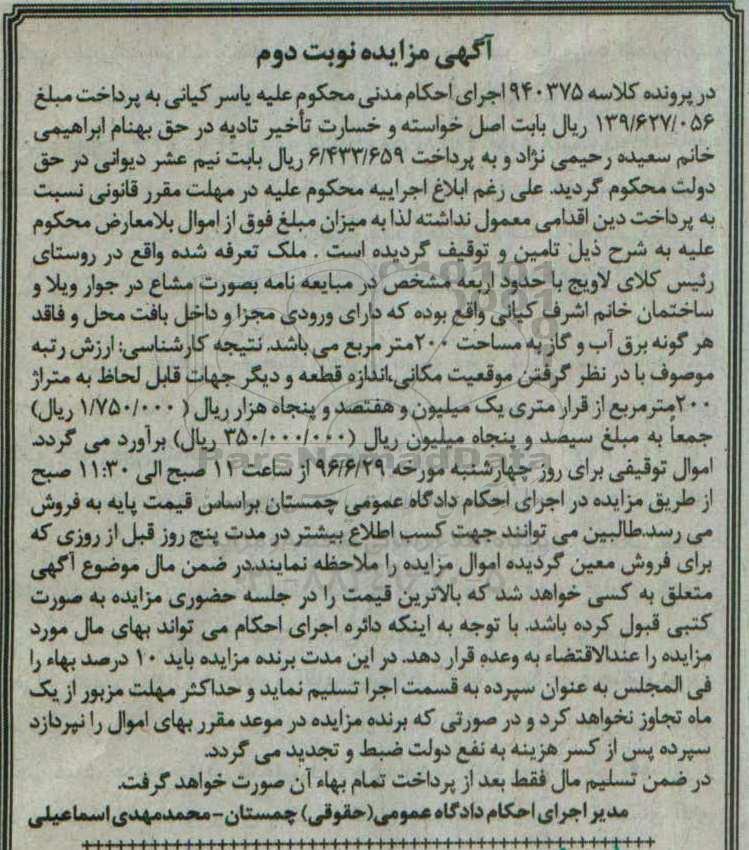 آگهی مزایده نوبت دوم
در پرونده کلاسه ۹۴۰۳۷۵ اجرای احکام مدنی محکوم علیه یاسر کیانی به پرداخت مبلغ
۱۳۹/۶۲۷/۰۵۶ ریال بابت اصل خواسته و خسارت تأخیر تادیه در حق بهنام ابراهیمی
خانم سعیده رحیمی نژاد و به پرداخت ۶/۴۳۳/۶۵۹ ریال بابت نیم عشر دیوانی در حق
دولت محکوم گردید. علی رغم ابلاغ اجراییه محکوم علیه در مهلت مقرر قانونی نسبت
به پرداخت دین اقدامی معمول نداشته لذا به میزان مبلغ فوق از اموال بلامعارض محکوم
علیه به شرح ذیل تامین و توقیف گردیده است . ملک تعرفه شده واقع در روستای
رئیس کلای لاویج با حدود اربعه مشخص در مبایعه نامه بصورت مشاع در جوار ویلا و
ساختمان خانم اشرف کیانی واقع بوده که دارای ورودی مجزا و داخل بافت محل و فاقد
هر گونه برق آب و گاز به مساحت ۲۰۰ متر مربع می باشد. نتیجه کارشناسی: ارزش رتبه
موصوف با در نظر گرفتن موقعیت مکانی،اندازه قطعه و دیگر جهات قابل لحاظ به متراژ
۲۰۰مترمربع از قرار متری یک میلیون و هفتصد و پنجاه هزار ریال ( ۱/۷۵۰/۰۰۰ ریال)
جمعاً به مبلغ سیصد و پنجاه میلیون ریال (۳۵۰/۰۰۰/۰۰۰ ریال) برآورد می گردد.
اموال توقیفی برای روز چهارشنبه مورخه ۹۶/۶/۲۹ از ساعت ۱۱ صبح الی ۱۱:۳۰ صبح
از طریق مزایده در اجرای احکام دادگاه عمومی چمستان براساس قیمت پایه به فروش
می رسد.طالبین می توانند جهت کسب اطلاع بیشتر در مدت پنج روز قبل از روزی که
برای فروش معین گردیده اموال مزایده را ملاحظه نمایند.در ضمن مال موضوع آگهی
متعلق به کسی خواهد شد که بالاترین قیمت را در جلسه حضوری مزایده به صورت
کتبی قبول کرده باشد. با توجه به اینکه دائره اجرای احکام می تواند بهای مال مورد
مزایده را عندالاقتضاء به وعده قرار دهد. در این مدت برنده مزایده باید ۱۰ درصد بهاء را
فی المجلس به عنوان سپرده به قسمت اجرا تسلیم نماید و حداکثر مهلت مزبور از یک
ماه تجاوز نخواهد کرد و در صورتی که برنده مزایده در موعد مقرر بهای اموال را نپردازد
سپرده پس از کسر هزینه به نفع دولت ضبط و تجدید می گردد.
در ضمن تسلیم مال فقط بعد از پرداخت تمام بهاء آن صورت خواهد گرفت.
مدیر اجرای احکام دادگاه عمومی(حقوقی) چمستان-محمدمهدی اسماعیلی
ParsNamadData